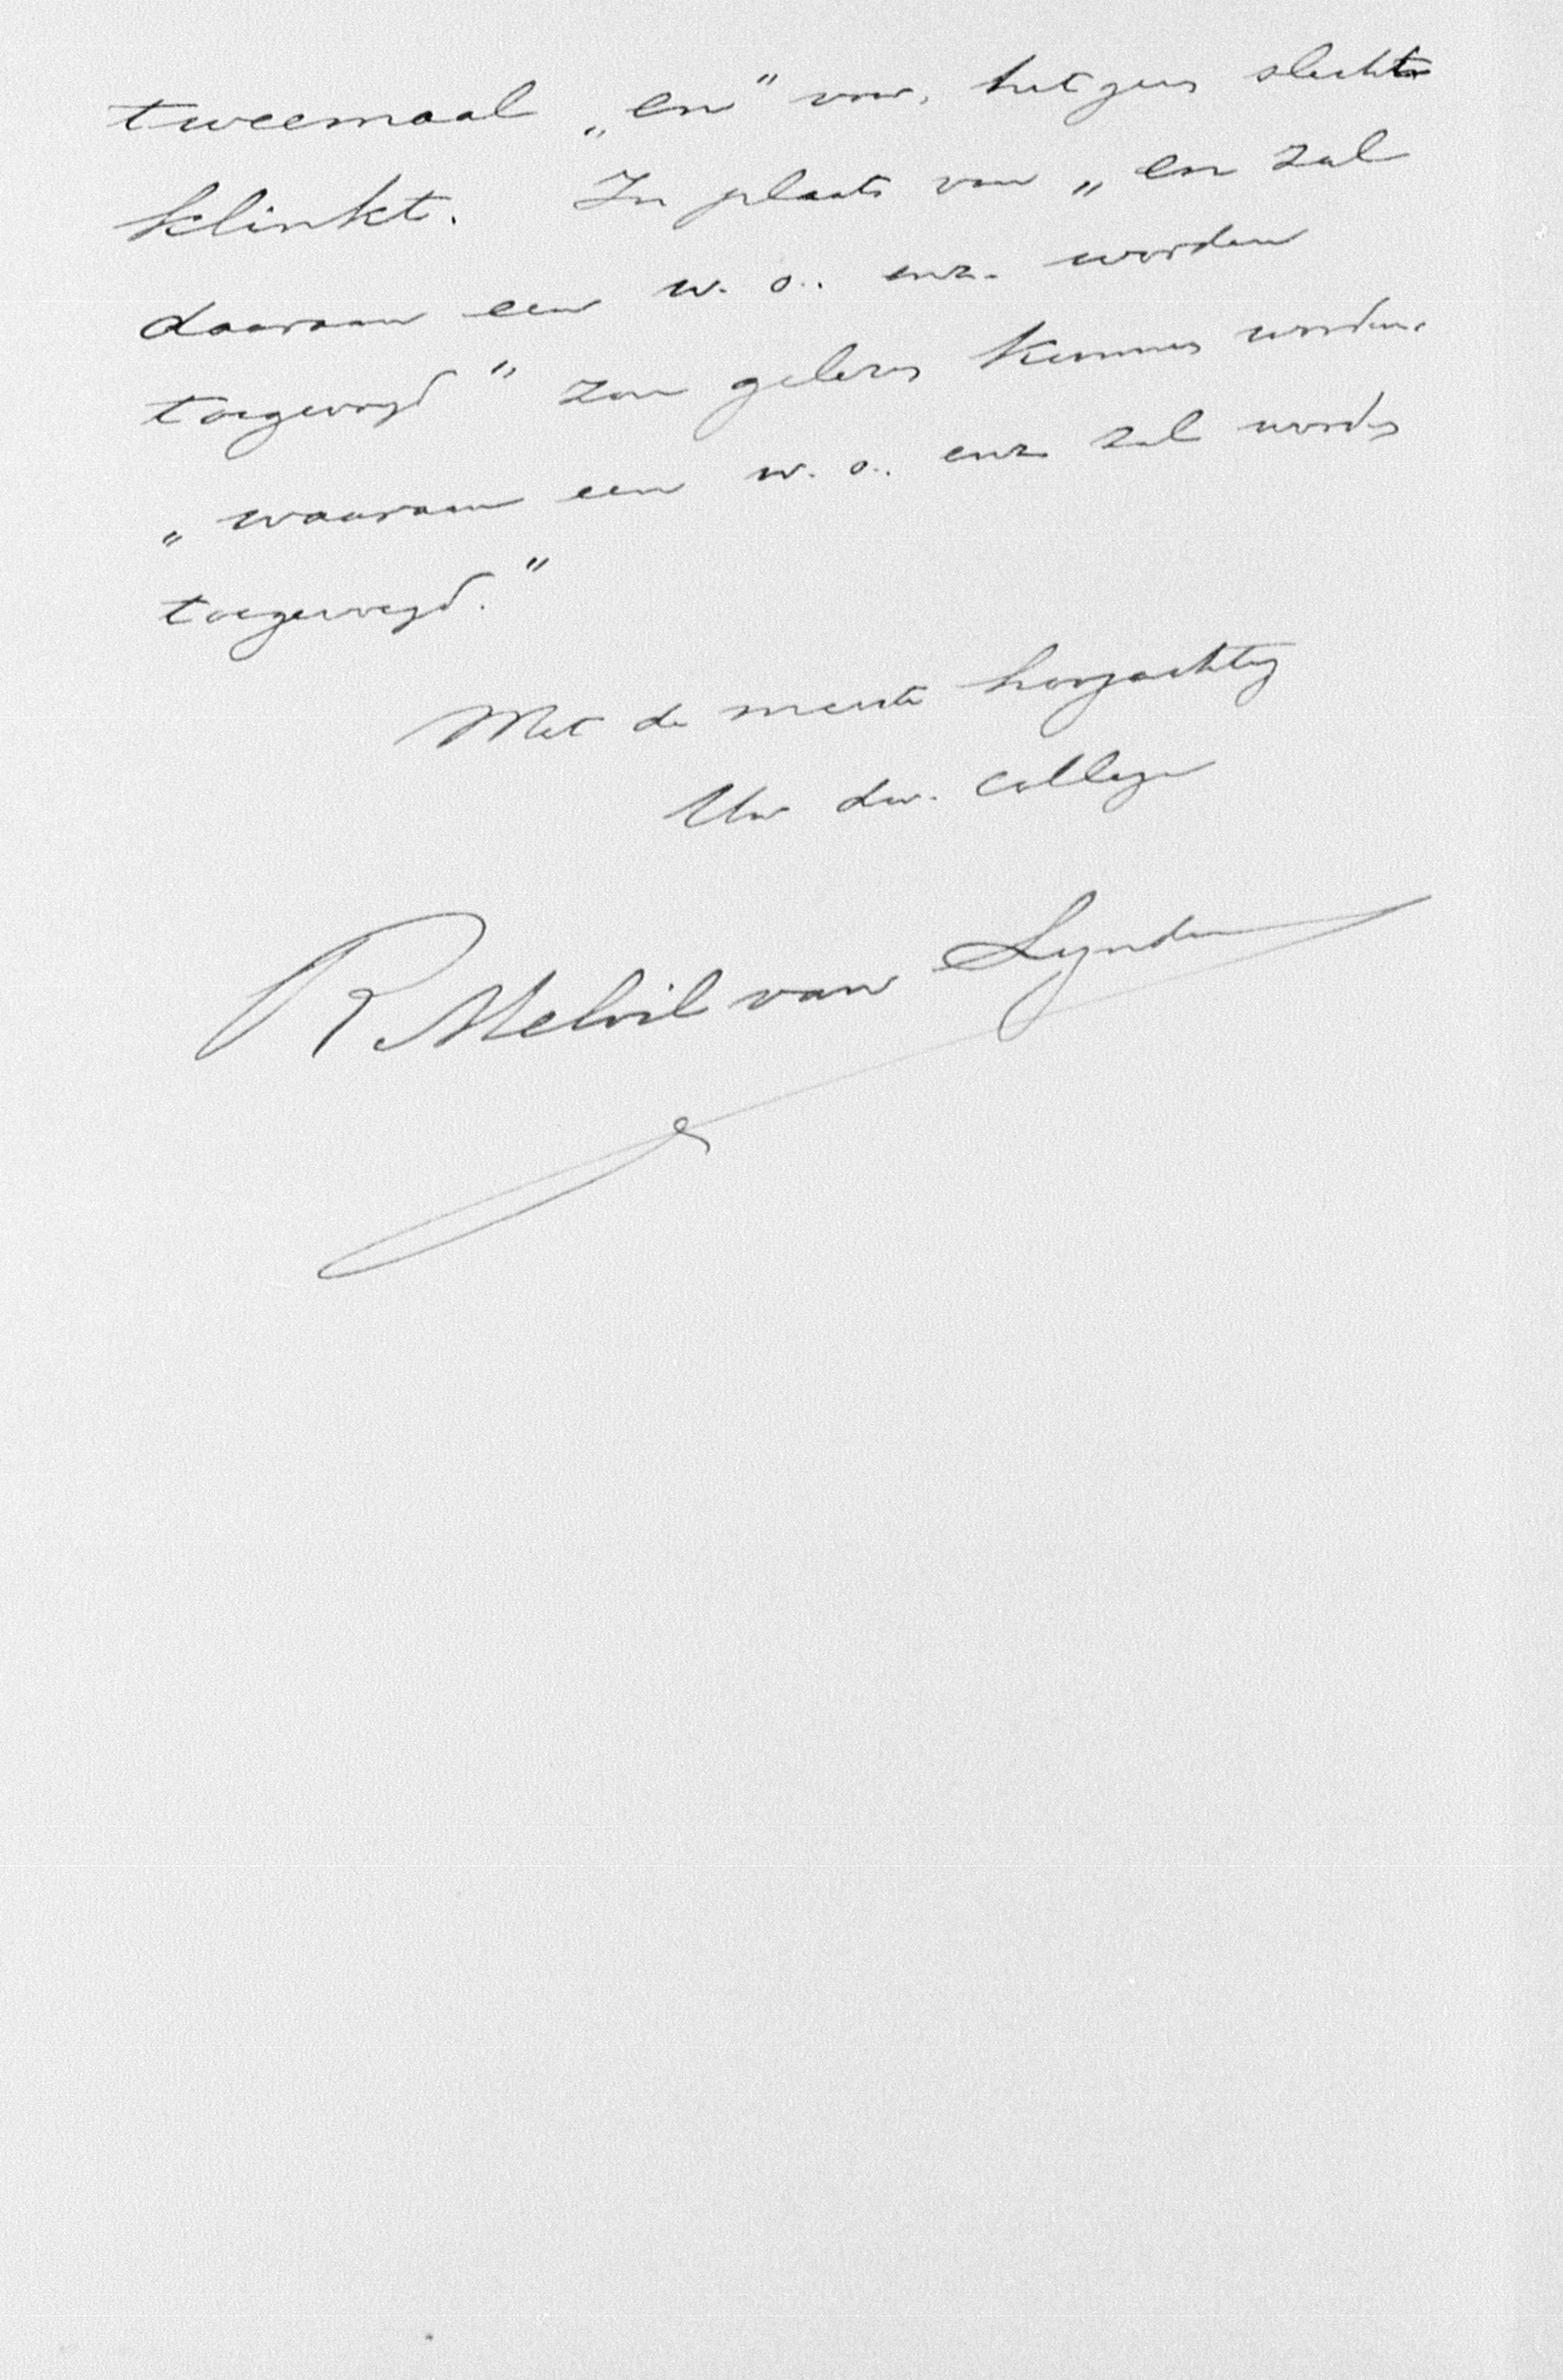 tweemaal „en" voor, hetgeen slecht
klinkt. In plaats van „en zal
daaraan een w. o.. enz. worden
toegevoegd" zou gelezen kunnen worden.
„waaraan een w. o.. enz zal worden
toegevoegd."
Met de meeste hoogachting
Uw dw. Collega
R. Melvil van Lynden